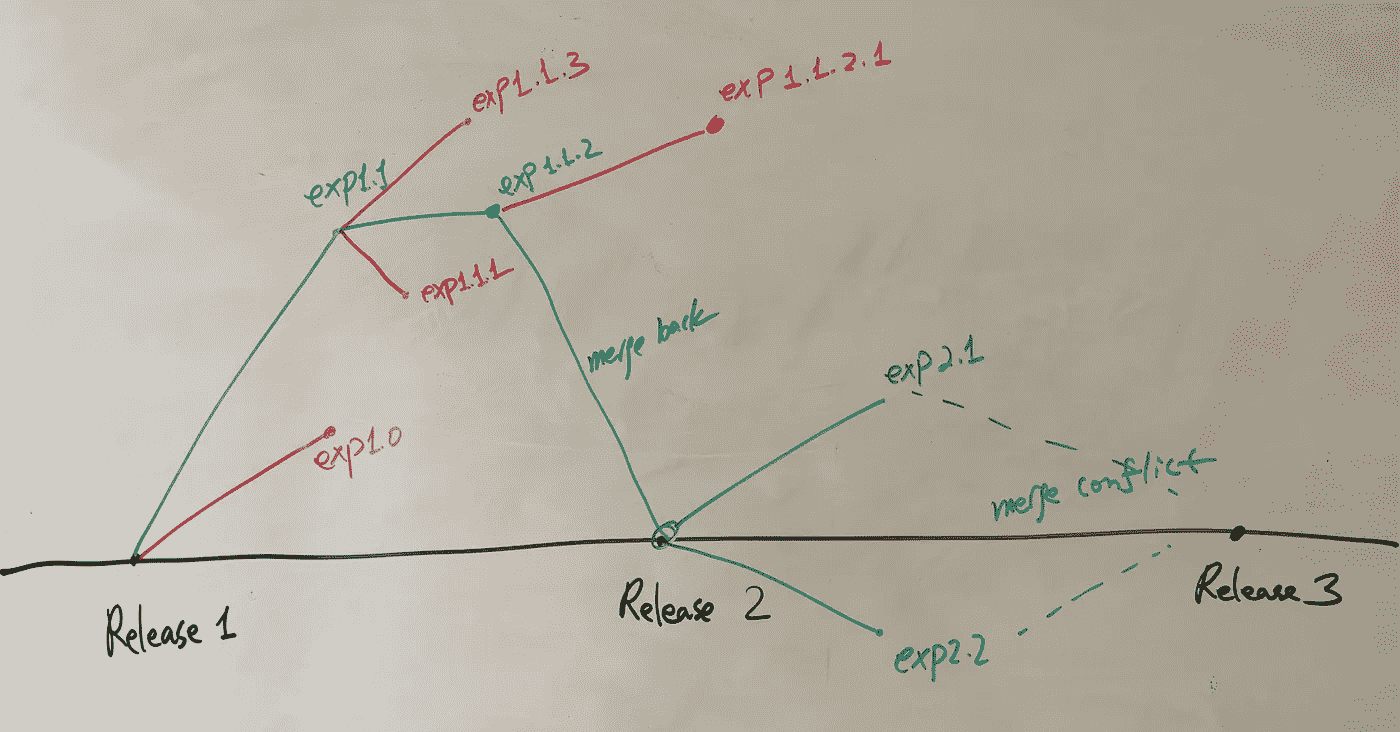 exp1.1.3
exp 1.1.2.1
exp1.1
exp 1.1.2
exp1.1.1
merge back
exp 2.1
exp1.0
merge conflict
Release 1
Release 2
Release 3
exp2.2